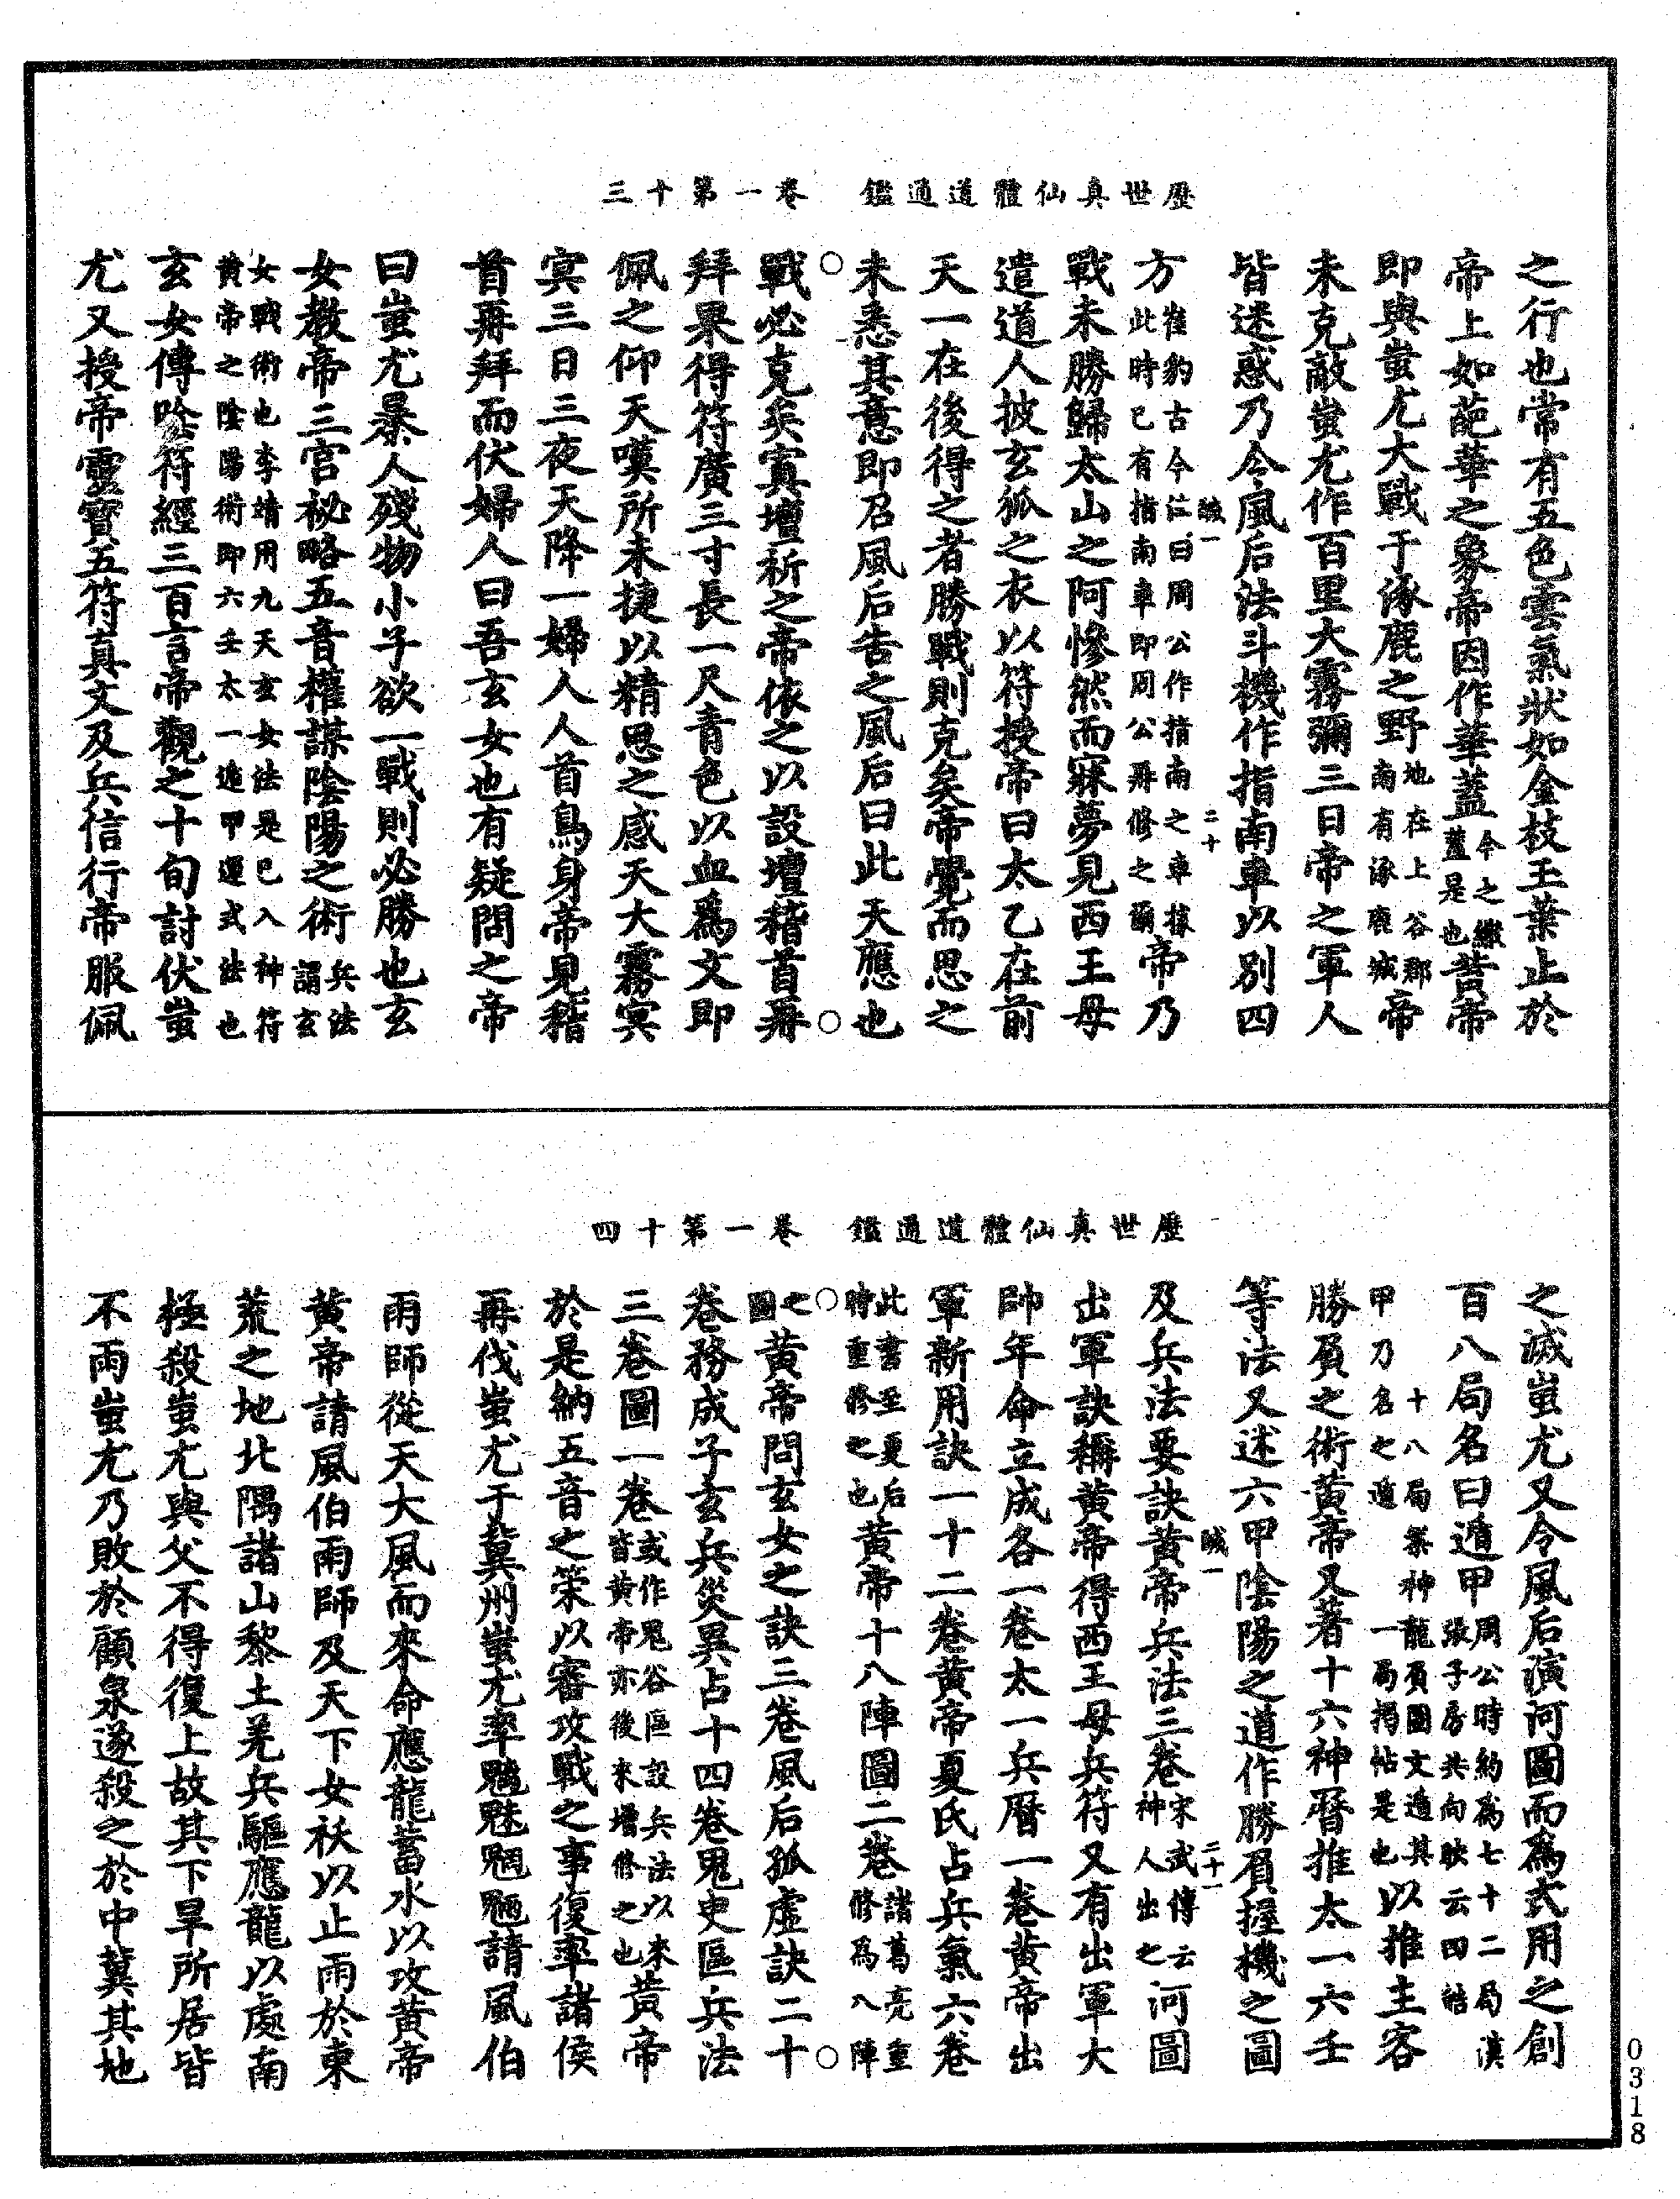 歷世真仙體道通鑑　卷一第十三
之行也常有五色雲氣狀如金枝玉葉止於
帝上如葩華之象帝因作華蓋今之繖蓋是也昔帝
即與蚩尤大戰于涿鹿之野地在上谷郡南有涿鹿城帝
未克敵蚩尤作百里大霧彌三日帝之軍人
皆迷惑乃令風后法斗機作指南車以別四
鹹一　二十
方崔豹古今註曰周公作指南之車據此時已有指南車即周公再修之爾帝乃
戰未勝歸太山之阿慘然而寐夢見西王母
遣道人披玄狐之衣以符授帝曰太乙在前
天一在後得之者勝戰則克矣帝覺而思之
未悉其意即召風后告之風后曰此天應也
戰必克矣寘壇祈之帝依之以設壇稽首再
拜果得符廣三寸長一尺青色以血為文即
佩之仰天嘆所未捷以精思之感天大霧冥
冥三日三夜天降一婦人人首鳥身帝見稽
首再拜而伏婦人曰吾玄女也有疑問之帝
曰蚩尤暴人殘物小子欲一戰則必勝也玄
女教帝三宮秘略五音權謀陰陽之術兵法謂玄
女戰術也李靖用九天玄女法是已入神符黃帝之陰陽術即六壬太一遁甲運式法也
玄女傳陰符經三百言帝觀之十旬討伏蚩
尤又授帝靈寶五符真文及兵信行帝服佩
歷世真仙體道通鑑　卷一第十四
之滅蚩尤又令風后演河圖而為式用之創
百八局名曰遁甲周公時約為七十二局漢張子房共向映云四皓
十八局案神龍負圖文遁其甲乃名之遁一局揭帖是也以推主客
勝負之術黃帝又著十六神曆推太一六壬
等法又述六甲陰陽之道作勝負握機之圖
鹹一　二十一
及兵法要訣黃帝兵法三卷宋武傳云神人出之河圖
出軍訣稱黃帝得西王母兵符又有出軍大
帥年命立成各一卷太一兵曆一卷黃帝出
軍新用訣一十二卷黃帝夏氏占兵氣六卷
此書至夏后時重修之也黃帝十八陣圖二卷諸葛亮重修為八陣
之圖黃帝問玄女之訣三卷風后孤虛訣二十
卷務成子玄兵災異占十四卷鬼臾區兵法
三卷圖一卷或作鬼谷區設兵法以來皆黃帝亦後來增修之也黃帝
於是納五音之策以審攻戰之事復率諸侯
再伐蚩尤于冀州蚩尤率魑魅魍魎請風伯
雨師從天大風而來命應龍蓄水以攻黃帝
黃帝請風伯雨師及天下女祅以止雨於東
荒之地北隅諸山黎土羌兵驅應龍以處南
極殺蚩尤與父不得復上故其下旱所居皆
不雨蚩尤乃敗於顧泉遂殺之於中冀其地
0318